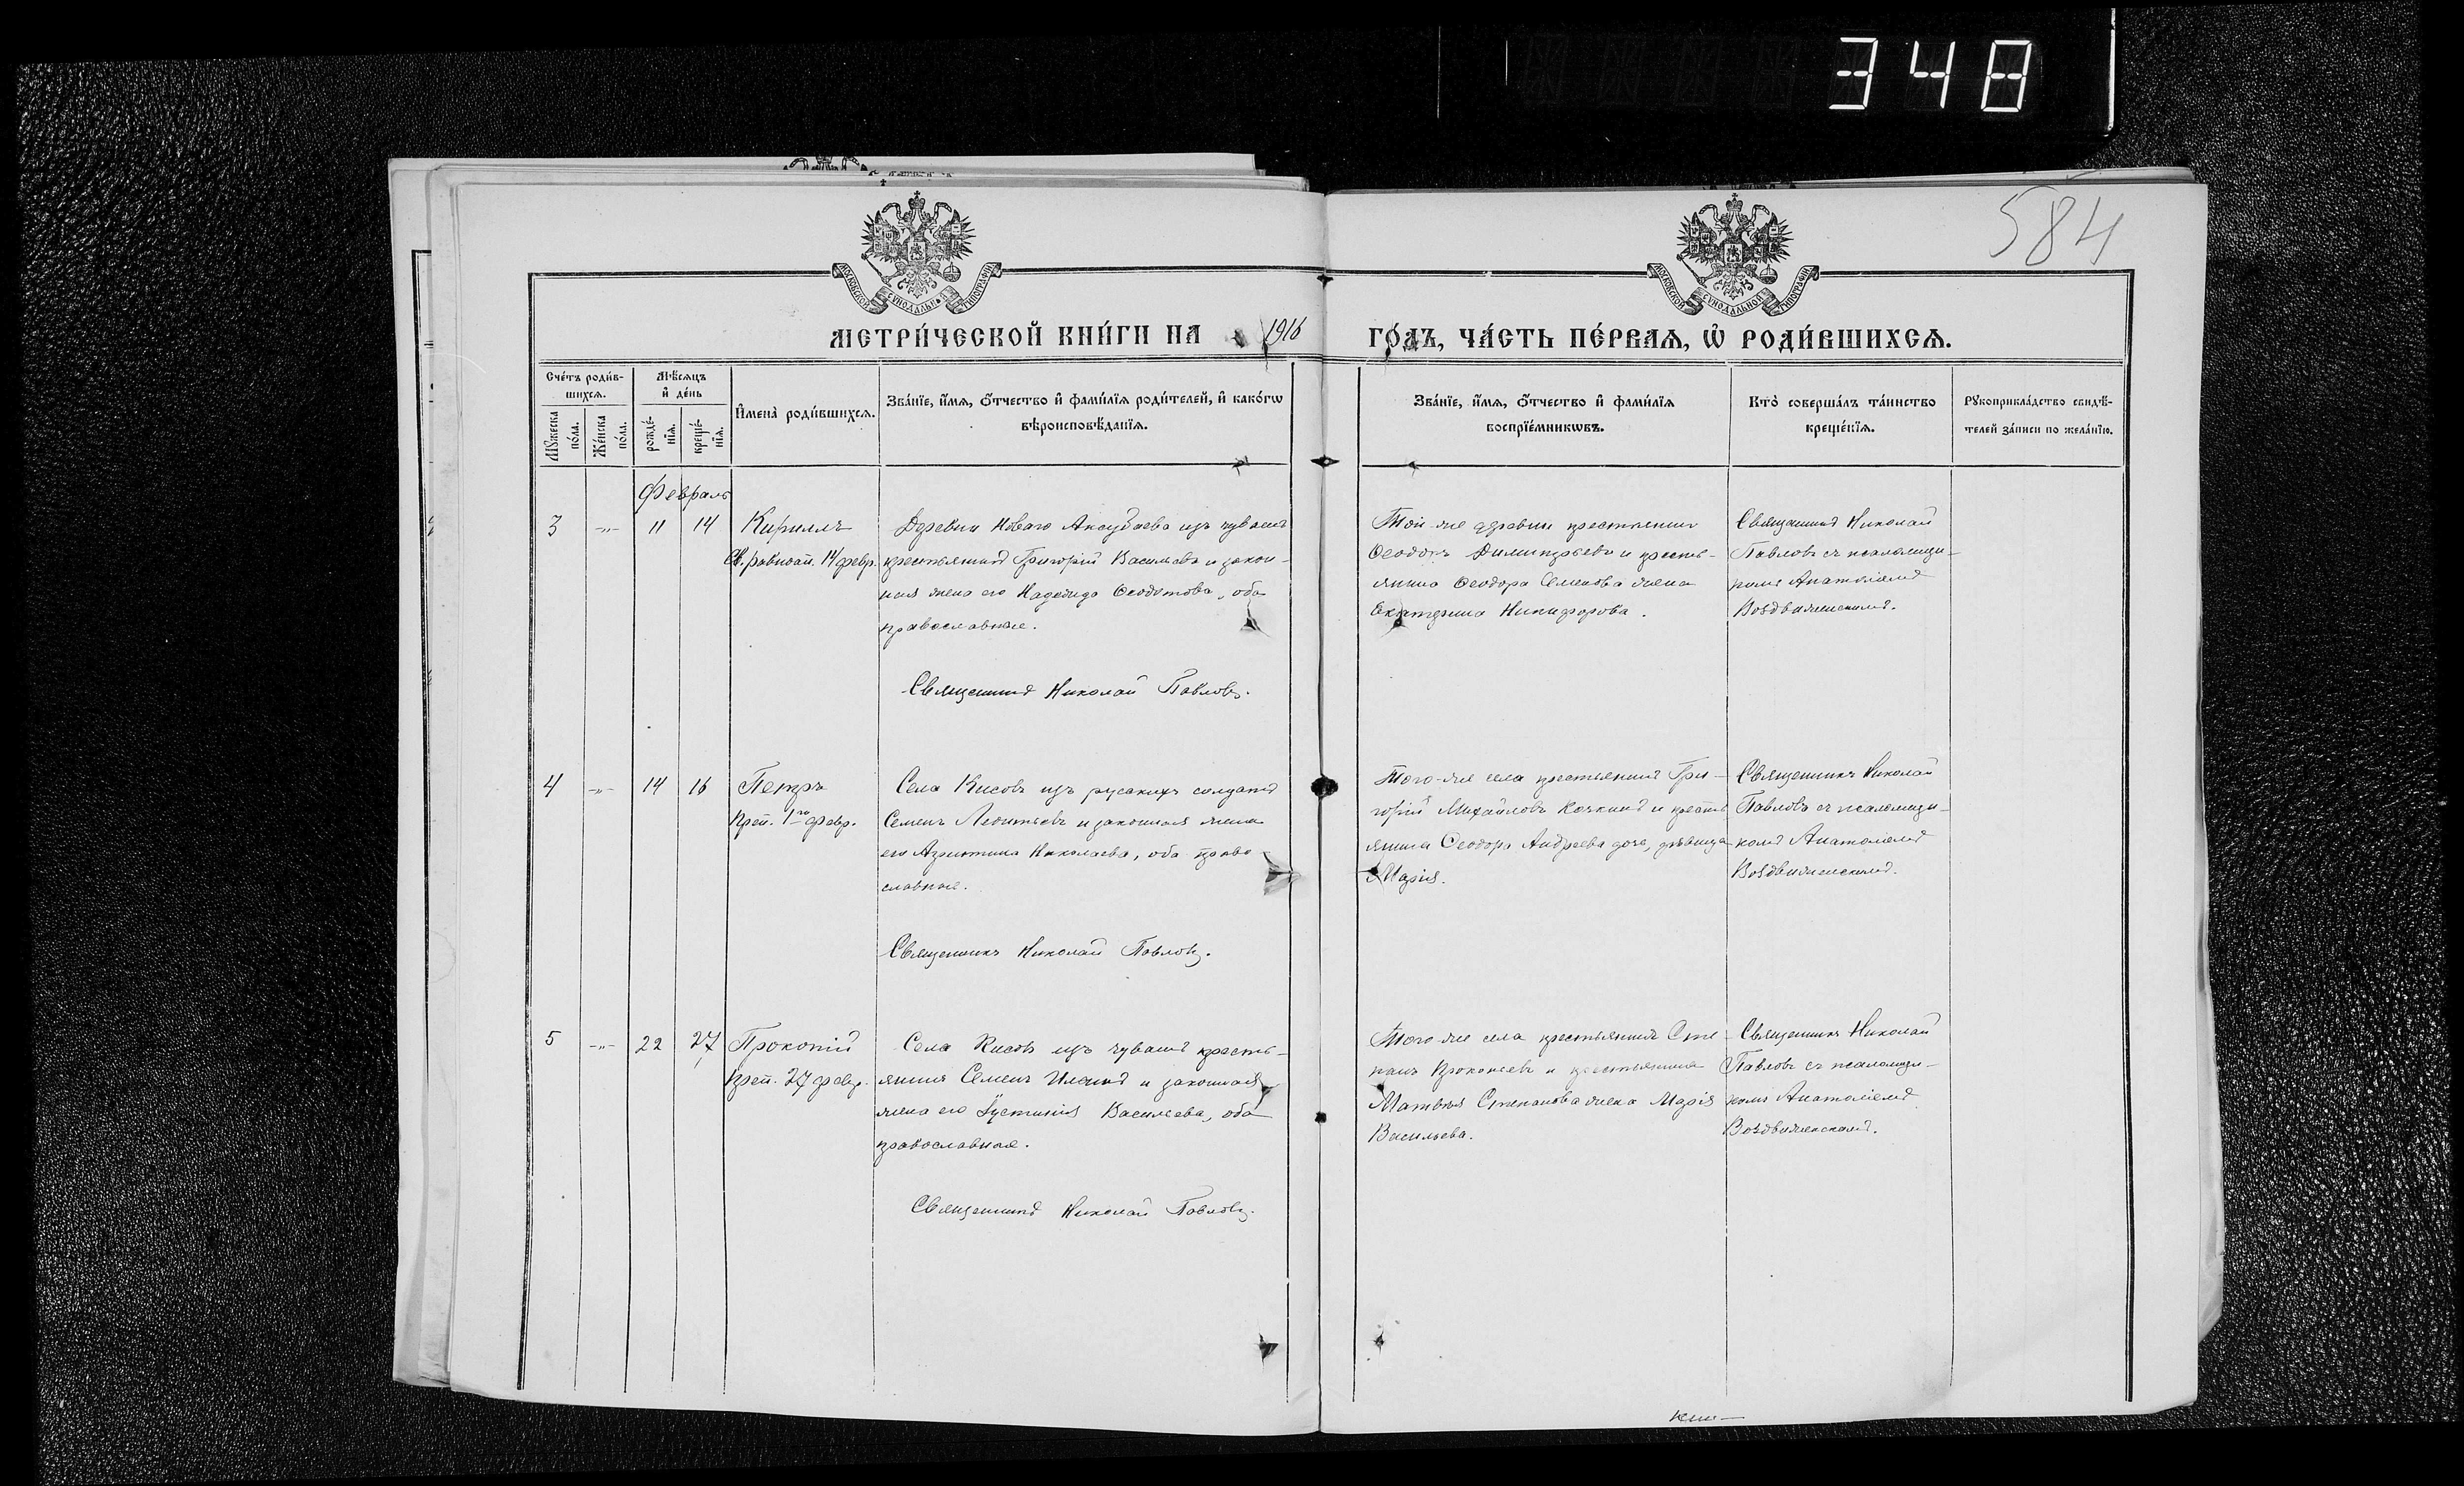 348
584
МОСКОВСКОЙ СѴНОДАЛЬН. ТИПОГРАФІИ
МОСКОВСКОЙ СѴНОДАЛЬНОЙ ТИПОГРАФІИ
МЕТРИ́ЧЕСКОЙ КНИ́ГИ НА 1916 ГО́ДЪ, ЧА́СТЬ ПЕ́РВАЯ, Ѡ҆ РОДИ́ВШИХСЯ.
Сче́тъ роди́в-
шихся.
Мꙋ́жеска по́ла.
Же́нска по́ла.
Мѣ́сяцъ
и҆ де́нь
рожде́-
нїя.
креще́-
нїя.
И҆мена̀ роди́вшихся.
Зва́нїе, и҆́мя, ѻ҆́тчество и҆ фами́лїя роди́телей, и҆ како́гѡ
вѣроисповѣ́данїя.
Зва́нїе, и҆́мя, ѻ҆́тчество и҆ фами́лїя
воспрїе́мникѡвъ.
Кто̀ соверша́лъ та́инство
креще́нїя.
Рꙋкоприкла́дство свидѣ́-
телей за́писи по жела́нїю.
Февраль
3 -"- 11 14 Кириллъ
Св. равноап. 14 февр.
Деревни Новаго Аксубаева изъ чувашъ
крестьянинъ Григорій Васильевъ и закон-
ная жена его Надежда Ѳеодотова, оба
православные.
Священникъ Николай Павловъ.
Той-же деревни крестьянинъ
Ѳеодоръ Димитріевъ и кресть-
янина Ѳеодора Семенова жена
Екатерина Никифорова.
Священникъ Николай
Павловъ съ псаломщи-
комъ Анатоліемъ
Воздвиженскимъ.
4 -"- 14 16 Петръ
Прп. 1го февр.
Села Кисовъ изъ русскихъ солдатъ
Семенъ Леонтьевъ и законная жена
его Агриппина Николаева, оба право-
славные.
Священникъ Николай Павловъ.
Того-же села крестьянинъ Гри-
горій Михайловъ и кресть-
янина Ѳеодора Андреева дочь, дѣвица
Марія.
Священникъ Николай
Павловъ съ псаломщи-
комъ Анатоліемъ
Воздвиженскимъ.
5 -"- 22 27 Прокопій
Прп. 27 февр.
Села Кисовъ изъ чувашъ кресть-
янинъ Семенъ и законная
жена его Іустинія Васильева, оба
православные.
Священникъ Николай Павловъ.
Того-же села крестьянинъ Сте-
панъ Прокопьевъ и крестьянина
Матвѣя Степанова жена Марія
Васильева.
Священникъ Николай
Павловъ съ псаломщи-
комъ Анатоліемъ
Воздвиженскимъ.